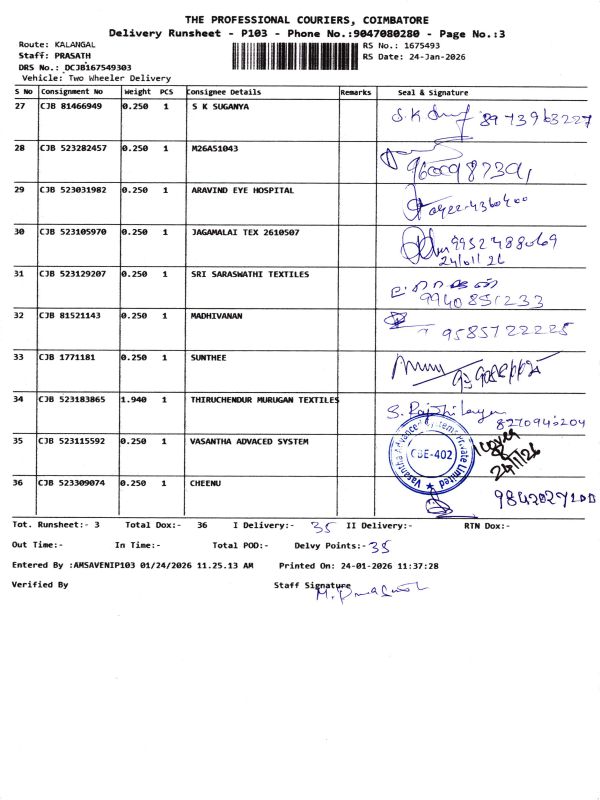 THE PROFESSIONAL COURIERS, COIMBATORE
Delivery Runsheet - P103 - Phone No.:9047080280 - Page No.:3
Route: KALANGAL
RS No.: 1675493
Staff: PRASATH
RS Date: 24-Jan-2026
DRS No.: DCJB167549303
Vehicle: Two Wheeler Delivery
S No Consignment No Weight PCS Consignee Details Remarks Seal & Signature
27 CJB 81466949 0.250 1 S K SUGANYA S.K 8973963227
28 CJB 523282457 0.250 1 M26A51043 9600987391
29 CJB 523031982 0.250 1 ARAVIND EYE HOSPITAL 0422-4360400
30 CJB 523105970 0.250 1 JAGAMALAI TEX 2610507 9952488069
24/01/26
31 CJB 523129207 0.250 1 SRI SARASWATHI TEXTILES
9940851233
32 CJB 81521143 0.250 1 MADHIVANAN 9585722225
33 CJB 1771181 0.250 1 SUNTHEE
34 CJB 523183865 1.940 1 THIRUCHENDUR MURUGAN TEXTILES S. 8270940204
35 CJB 523115592 0.250 1 VASANTHA ADVACED SYSTEM Vasantha Advanced Systems Private Limited
CBE-402
24/1/26
36 CJB 523309074 0.250 1 CHEENU 9842027100
Tot. Runsheet:- 3 Total Dox:- 36 I Delivery:- 35 II Delivery:- RTN Dox:-
Out Time:- In Time:- Total POD:- Delvy Points:- 35
Entered By :AMSAVENIP103 01/24/2026 11.25.13 AM Printed On: 24-01-2026 11:37:28
Verified By Staff Signature